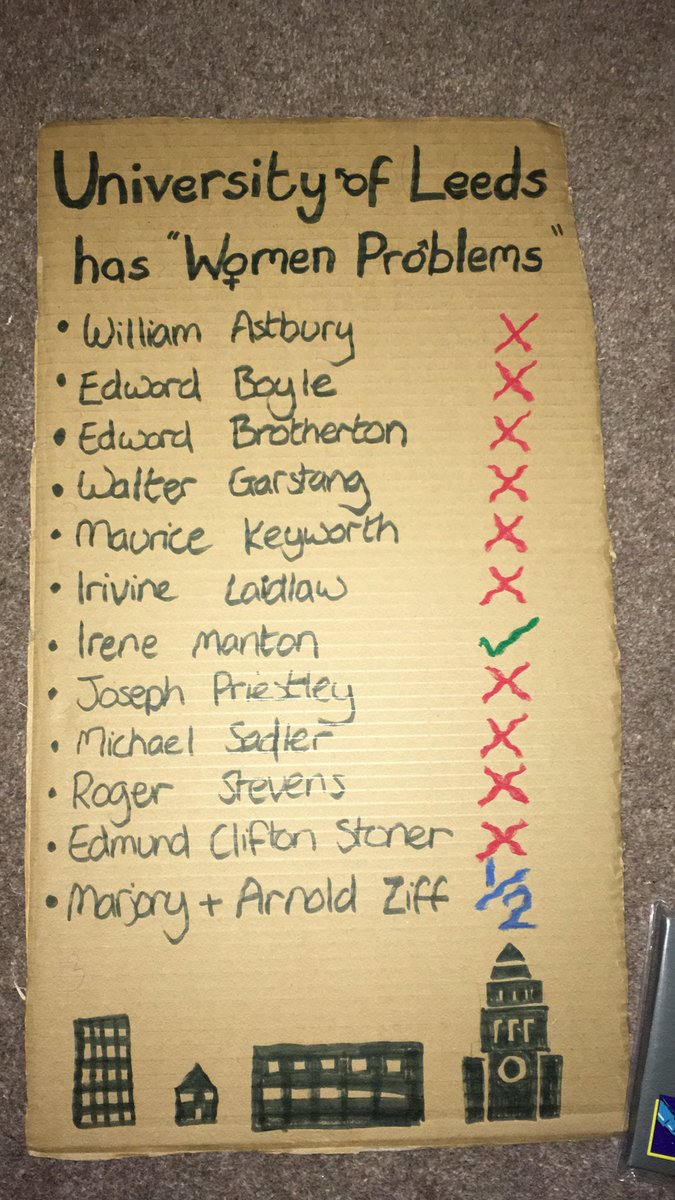 University of Leeds
has "Women Problems"
• William Astbury X
• Edward Boyle X
• Edward Brotherton X
• Walter Garstang X
• Maurice Keyworth X
• Irivine Laidlaw X
• Irene Manton ✓
• Joseph Priestley X
• Michael Sadler X
• Roger Stevens X
• Edmund Clifton Stoner X
• Marjory + Arnold Ziff 1/2